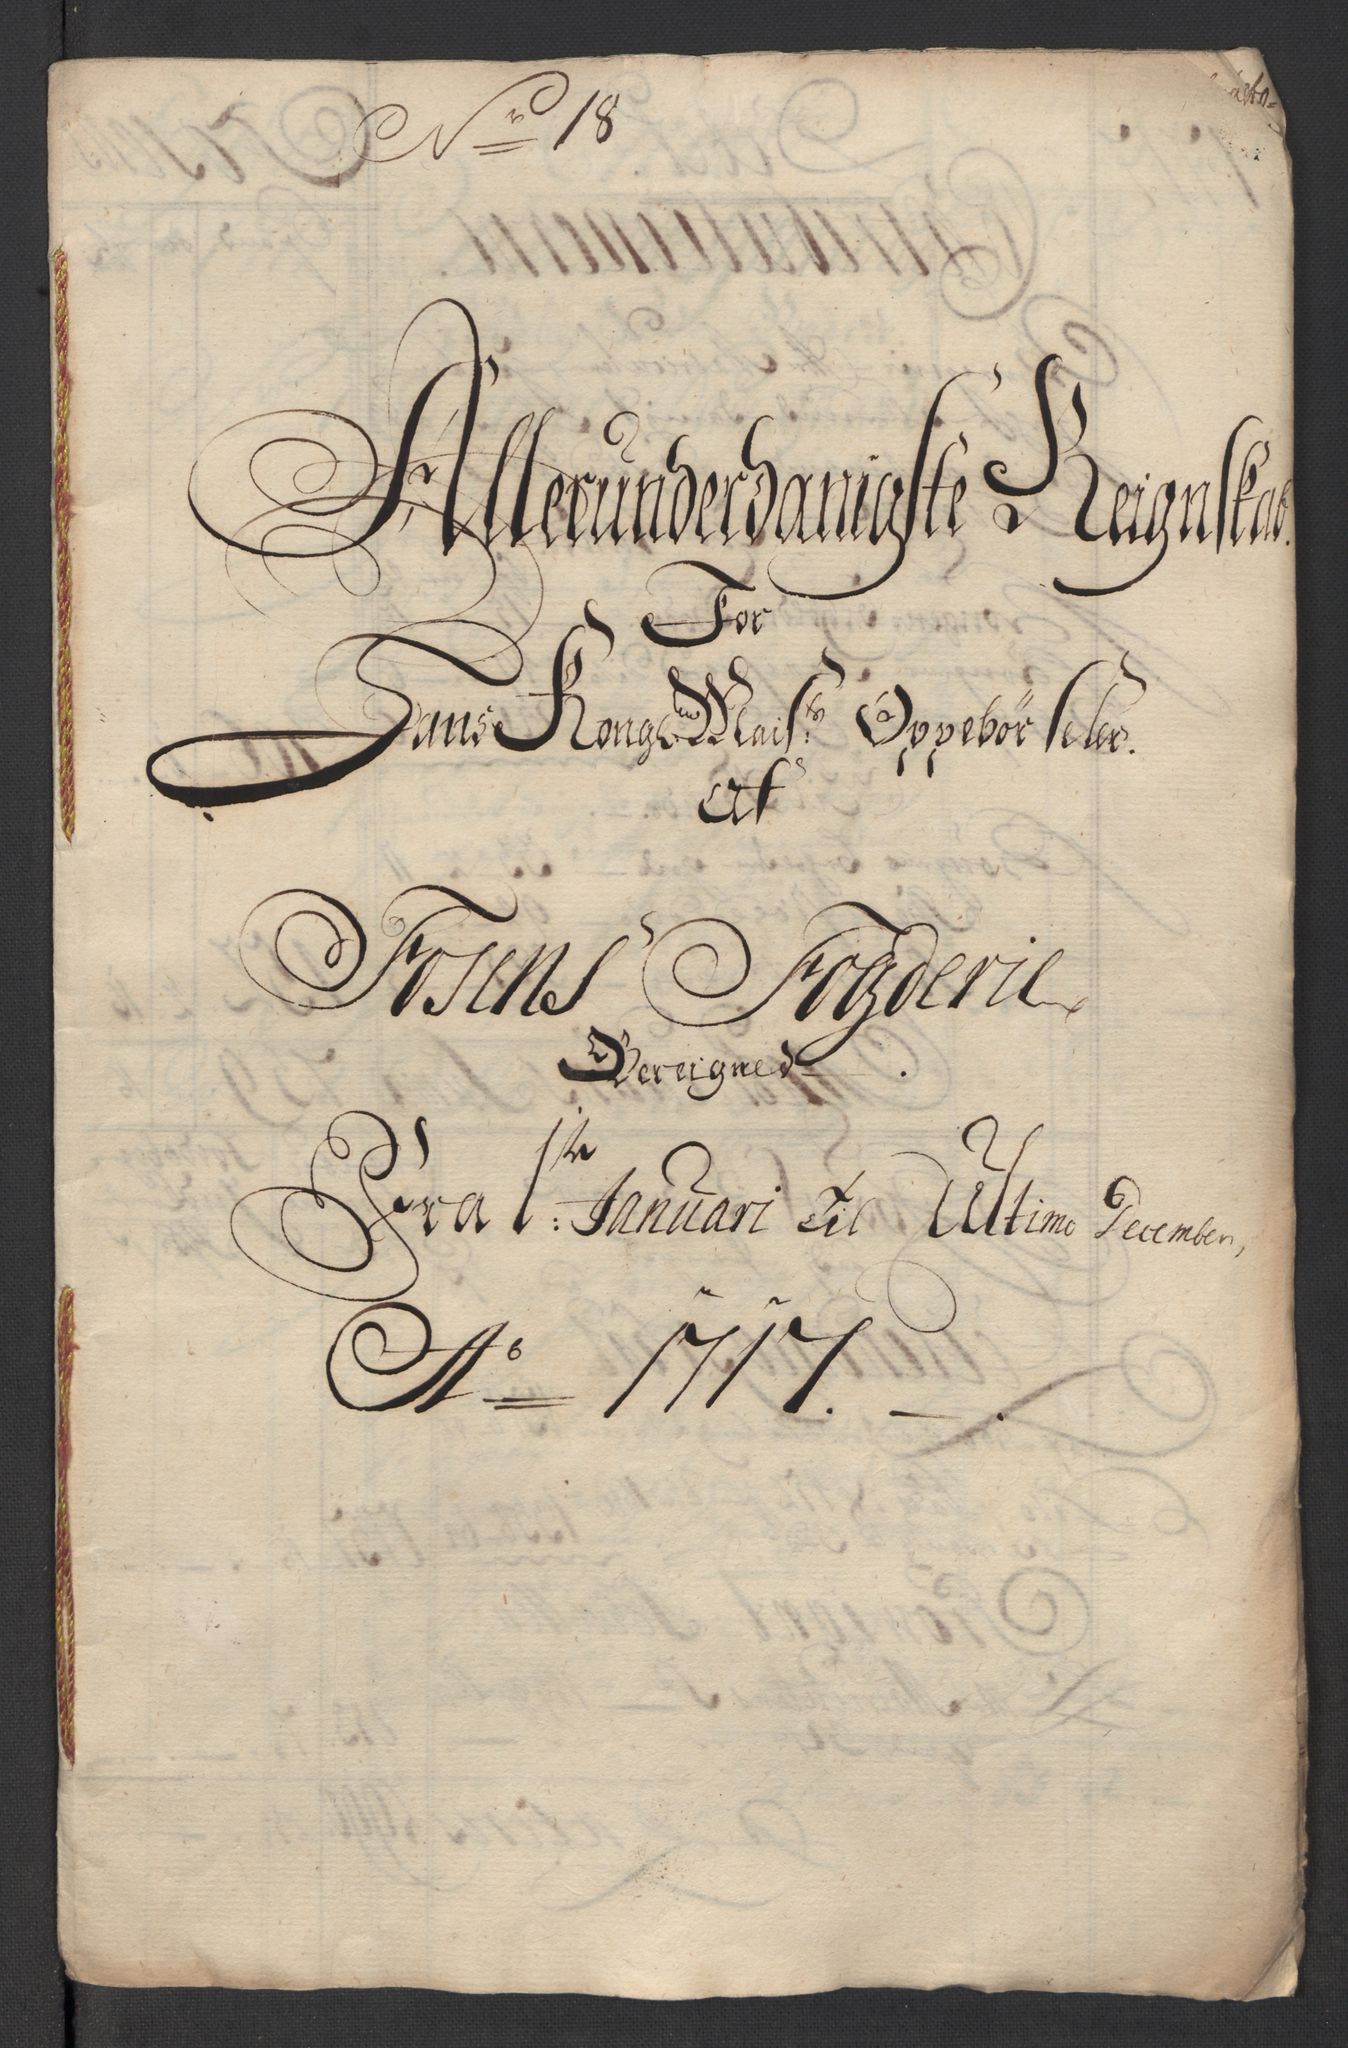 No 18
Allerunderdanigste Reignskab.
For
Hans Kongl Maists Oppebörseler.
Af
Fosens Fogderie
Bereigned
Fra 1te Januari til Ultimo December,
Ao 1717.